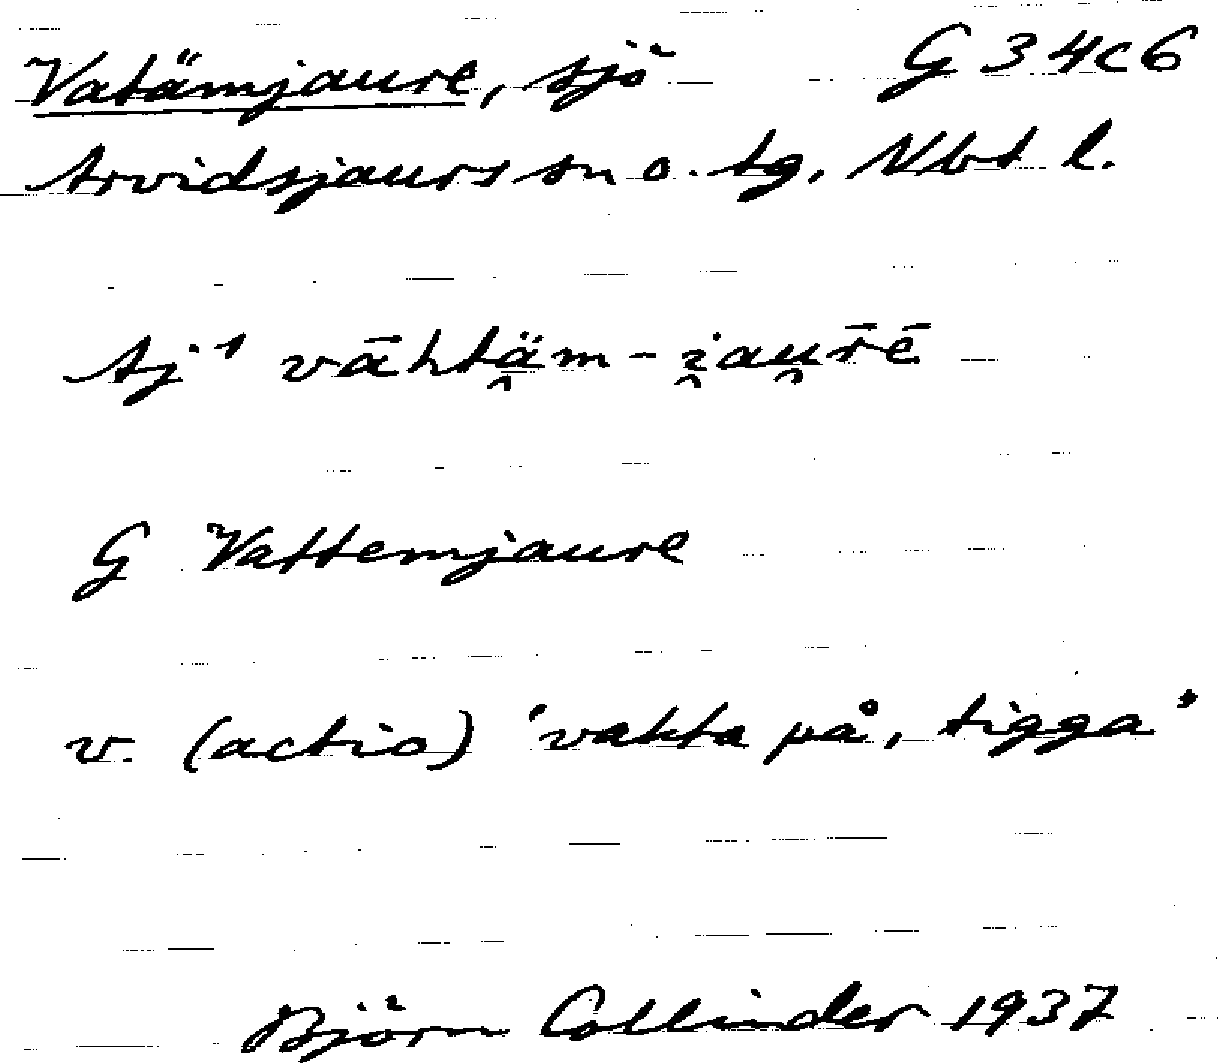 Vatämjaure, sjö G 34c6
Arvidsjaurs sn o. tg, Nbt l.
Aj 1 vāhtä̯m-i̯au̯r̄ē
G Vattemjaure
v. (actio) 'vakta på, tigga'
Björn Collinder 1937